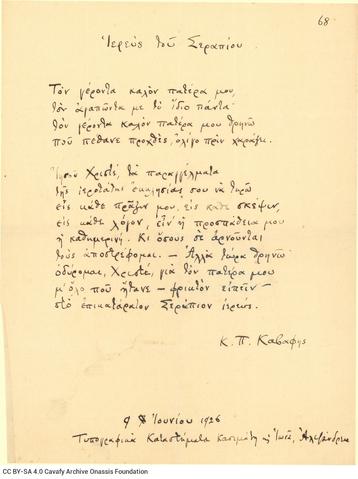 68
Ἱερεὺς τοῦ Σεραπίου
Τὸν γέροντα καλὸν πατέρα μου,
τὸν ἀγαπῶντα με τὸ ἴδιο πάντα·
τὸν γέροντα καλὸν πατέρα μου θρηνῶ
ποῦ πέθανε προχθές, ὀλίγο πρὶν χαράξει.
Ἰησοῦ Χριστέ, τὰ παραγγέλματα
τῆς ἱεροτάτης ἐκκλησίας σου νὰ τηρῶ
εἰς κάθε πρᾶξιν μου, εἰς κάθε σκέψιν,
εἰς κάθε λόγον, εἶν' ἡ προσπάθεια μου
ἡ καθημερινή. Κι ὅσους σὲ ἀρνοῦνται
τοὺς ἀποστρέφομαι. — Ἀλλὰ τώρα θρηνῶ·
ὀδύρομαι, Χριστέ, γιὰ τὸν πατέρα μου
μ' ὅλο ποῦ ἤτανε — φρικτὸν εἰπεῖν —
στὸ ἐπικατάρατον Σεράπιον ἱερεύς.
Κ. Π. Καβάφης
9 Ἰουνίου 1926
Τυπογραφικὰ Καταστήματα Κασιμάτη & Ἰωνᾶ, Ἀλεξάνδρεια
CC BY-SA 4.0 Cavafy Archive Onassis Foundation